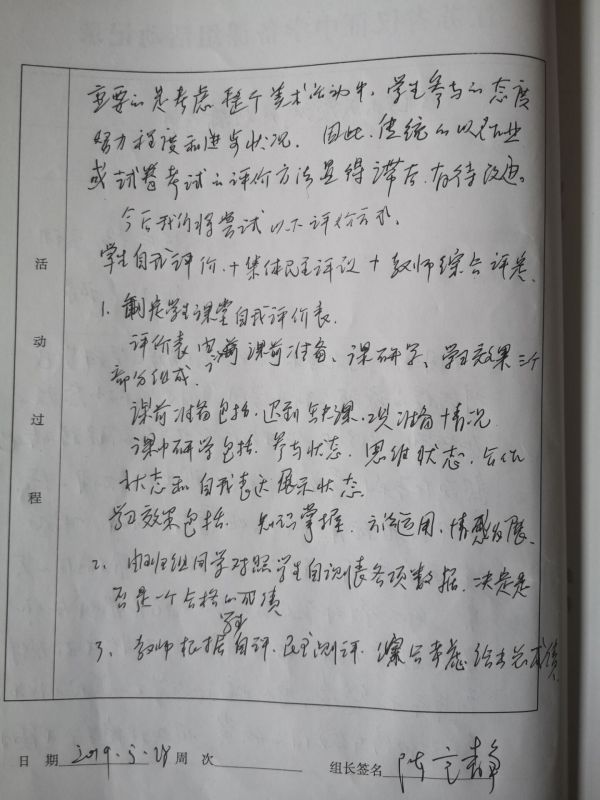 重要的是考虑整个美术活动中，学生参与的态度
努力程度和进步状况。因此，传统的以作业
或试卷考试的评价方法显得滞后，有待改进。
今后我们将尝试以下评价方式。
学生自我评价，+集体民主评议+教师综合评差。
1、制定学生课堂自我评价表。
评价表由课前准备、课研学、学习效果三个
部分组成。
课前准备包括，迟到缺课，准备情况
课中研学包括，参与状态，思维状态，合作
状态和自我表达展示状态
学习效果包括，知识掌握，方法运用，情感发展、
2、由班组同学对照学生自测表各项数据，决定是
否是一个合格的成绩
3、教师根据学生自评，民主测评，综合考虑，给出总成绩
活动过程
日 期 2019.5.28 周 次 组长签名